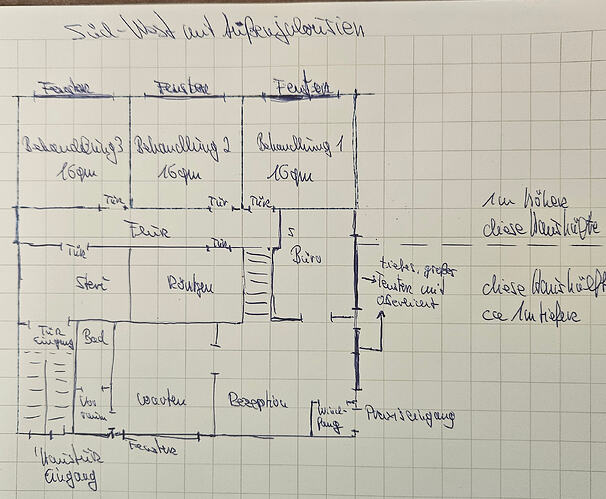 Süd-West mit Außenjalousien
Fenster Fenster Fenster
Behandlung 3 Behandlung 2 Behandlung 1
16qm 16qm 16qm
Tür Tür Tür
1m höher
diese Haushälfte
Flur
S
Büro
Tür Tür
tiefes, großes
Fenster mit
Oberlicht
Steri Röntgen
diese Haushälft
ca 1m tiefer
Tür
Eingang
Bad
Vor
raum
Warten
Rezeption
Wind-
fang
Praxiseingang
Fenster
Haustür
Eingang